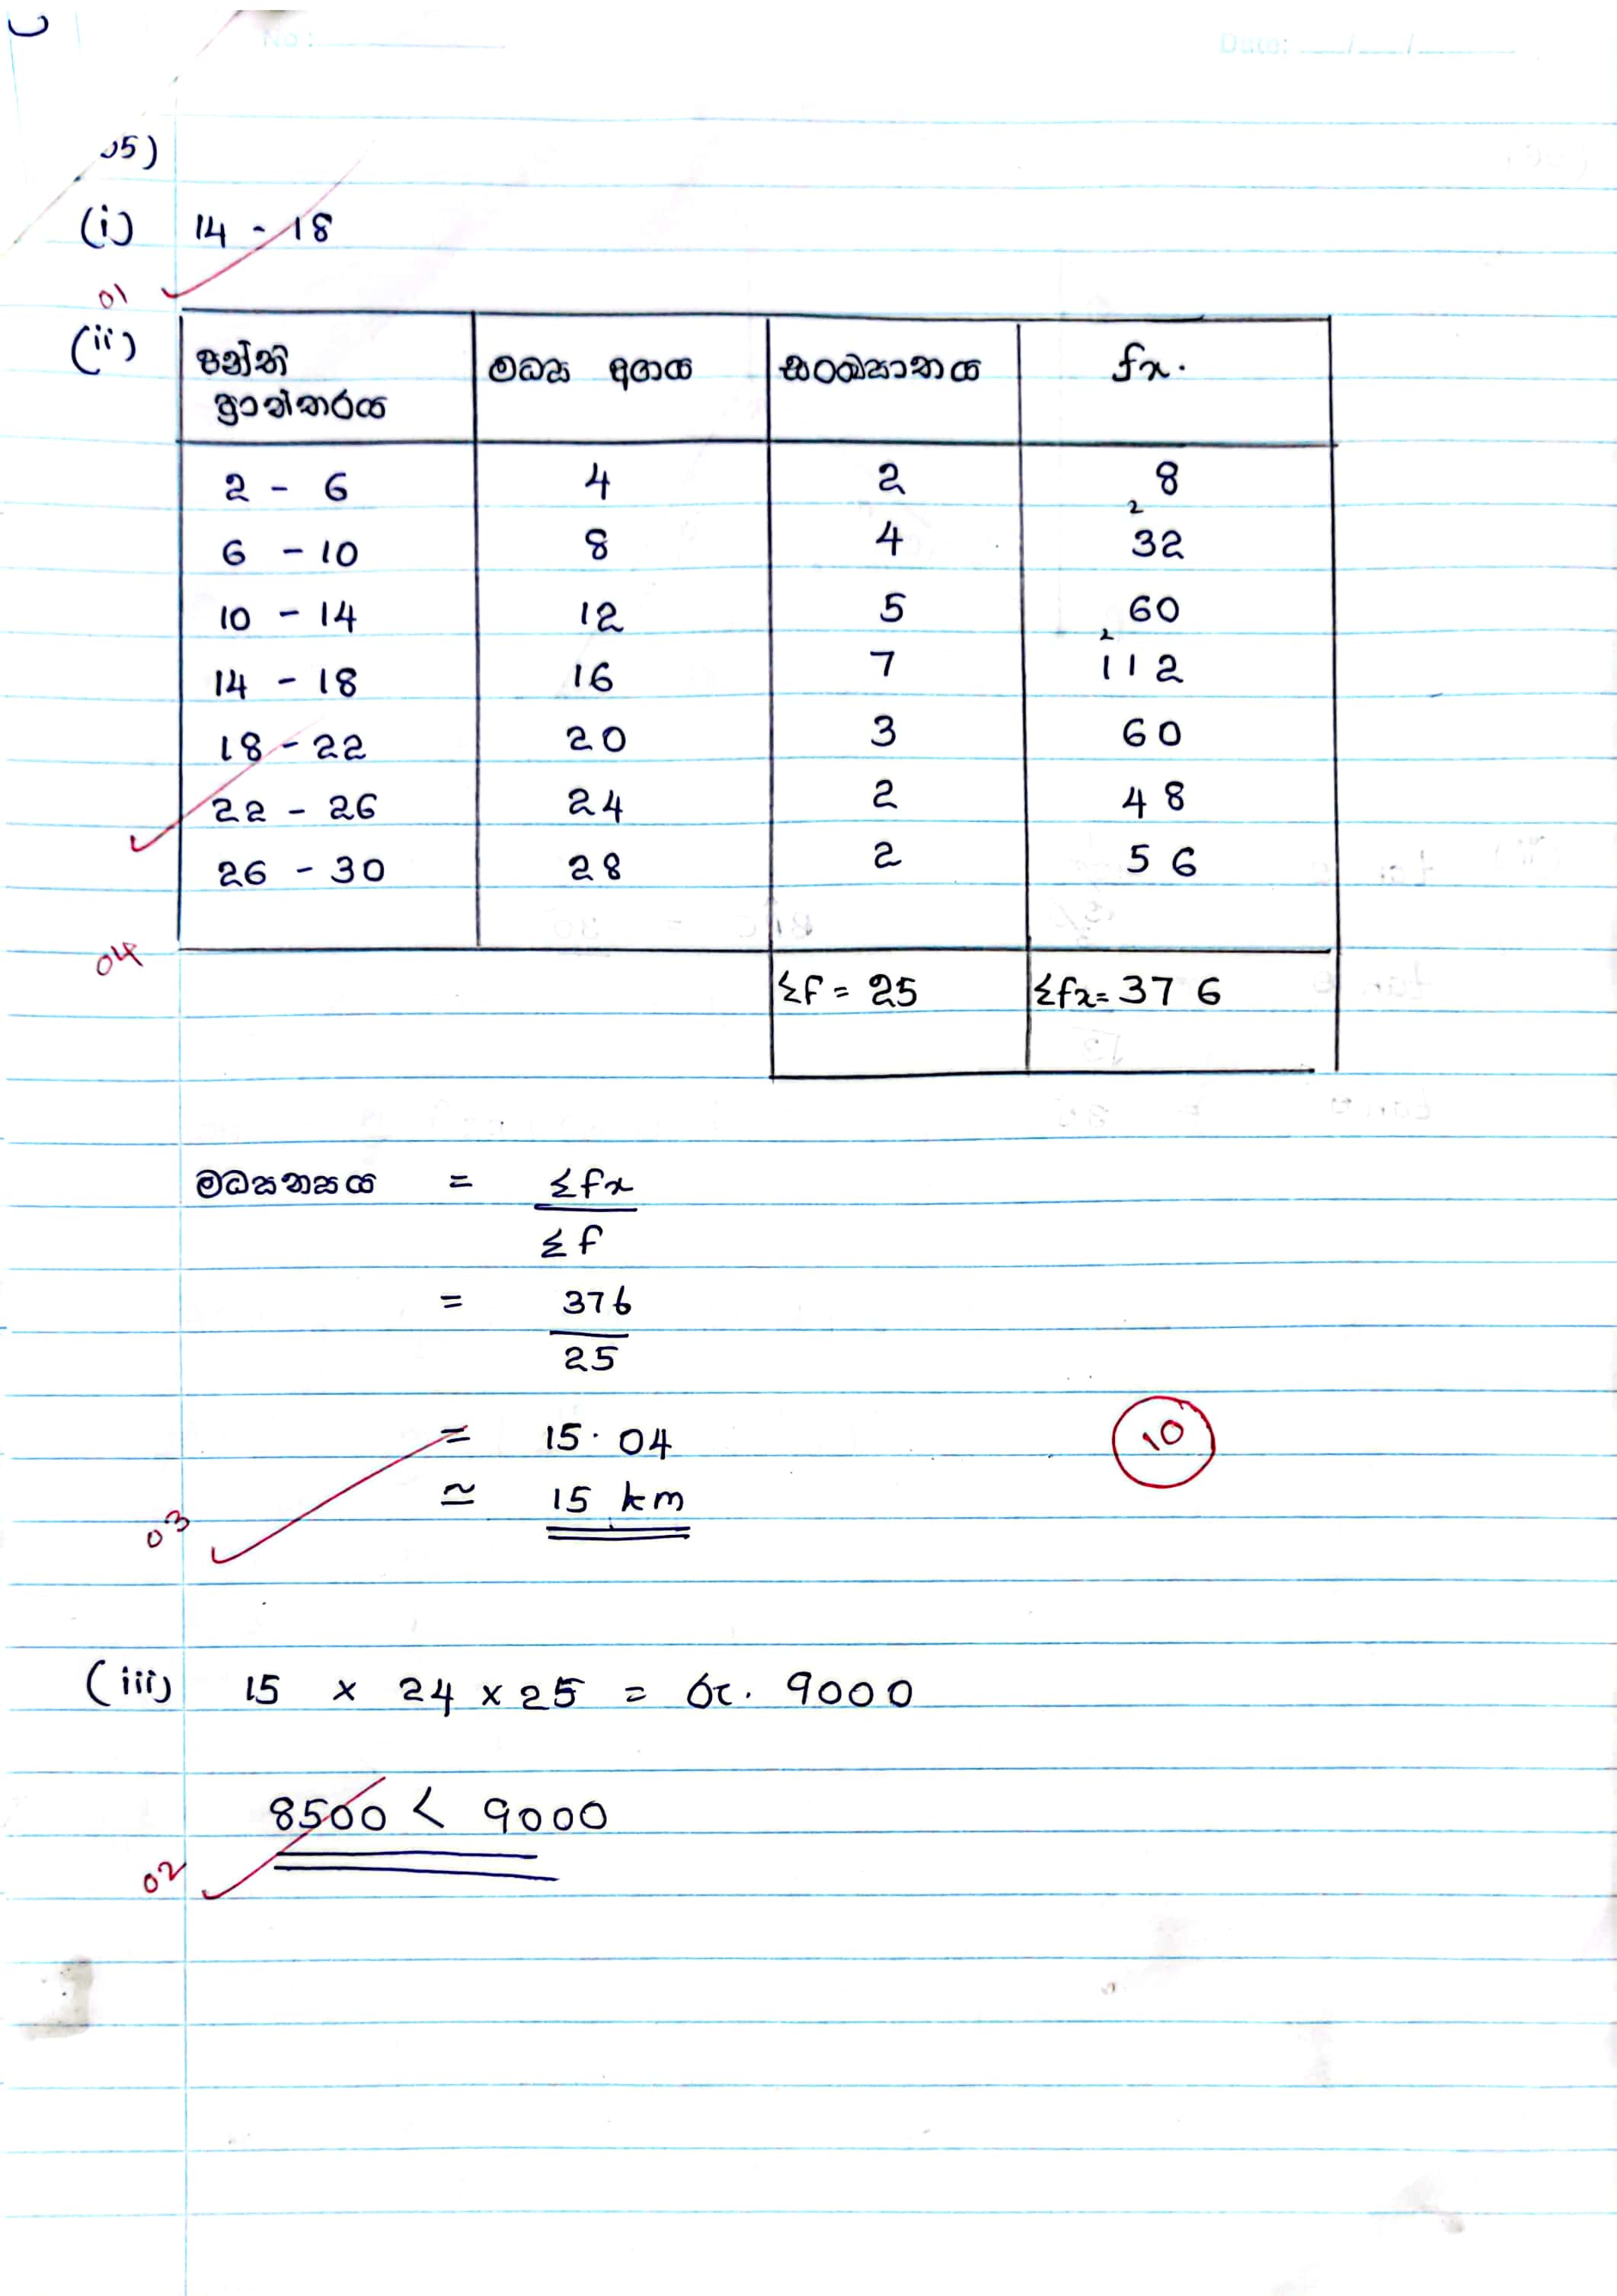 No :
Date: __/__/__
05)
(i) 14 - 18
01
(ii) පන්ති ප්‍රාන්තරය මධ්‍ය අගය සංඛ්‍යාතය fx.
2 - 6 4 2 8
2
6 - 10 8 4 32
10 - 14 12 5 60
2
14 - 18 16 7 112
18 - 22 20 3 60
22 - 26 24 2 48
26 - 30 28 2 56
04
Σf = 25 Σfx = 376
මධ්‍යන්‍යය = Σfx
Σf
= 376
25
= 15.04
10
≃ 15 km
03
(iii) 15 × 24 × 25 = රු. 9000
8500 < 9000
02